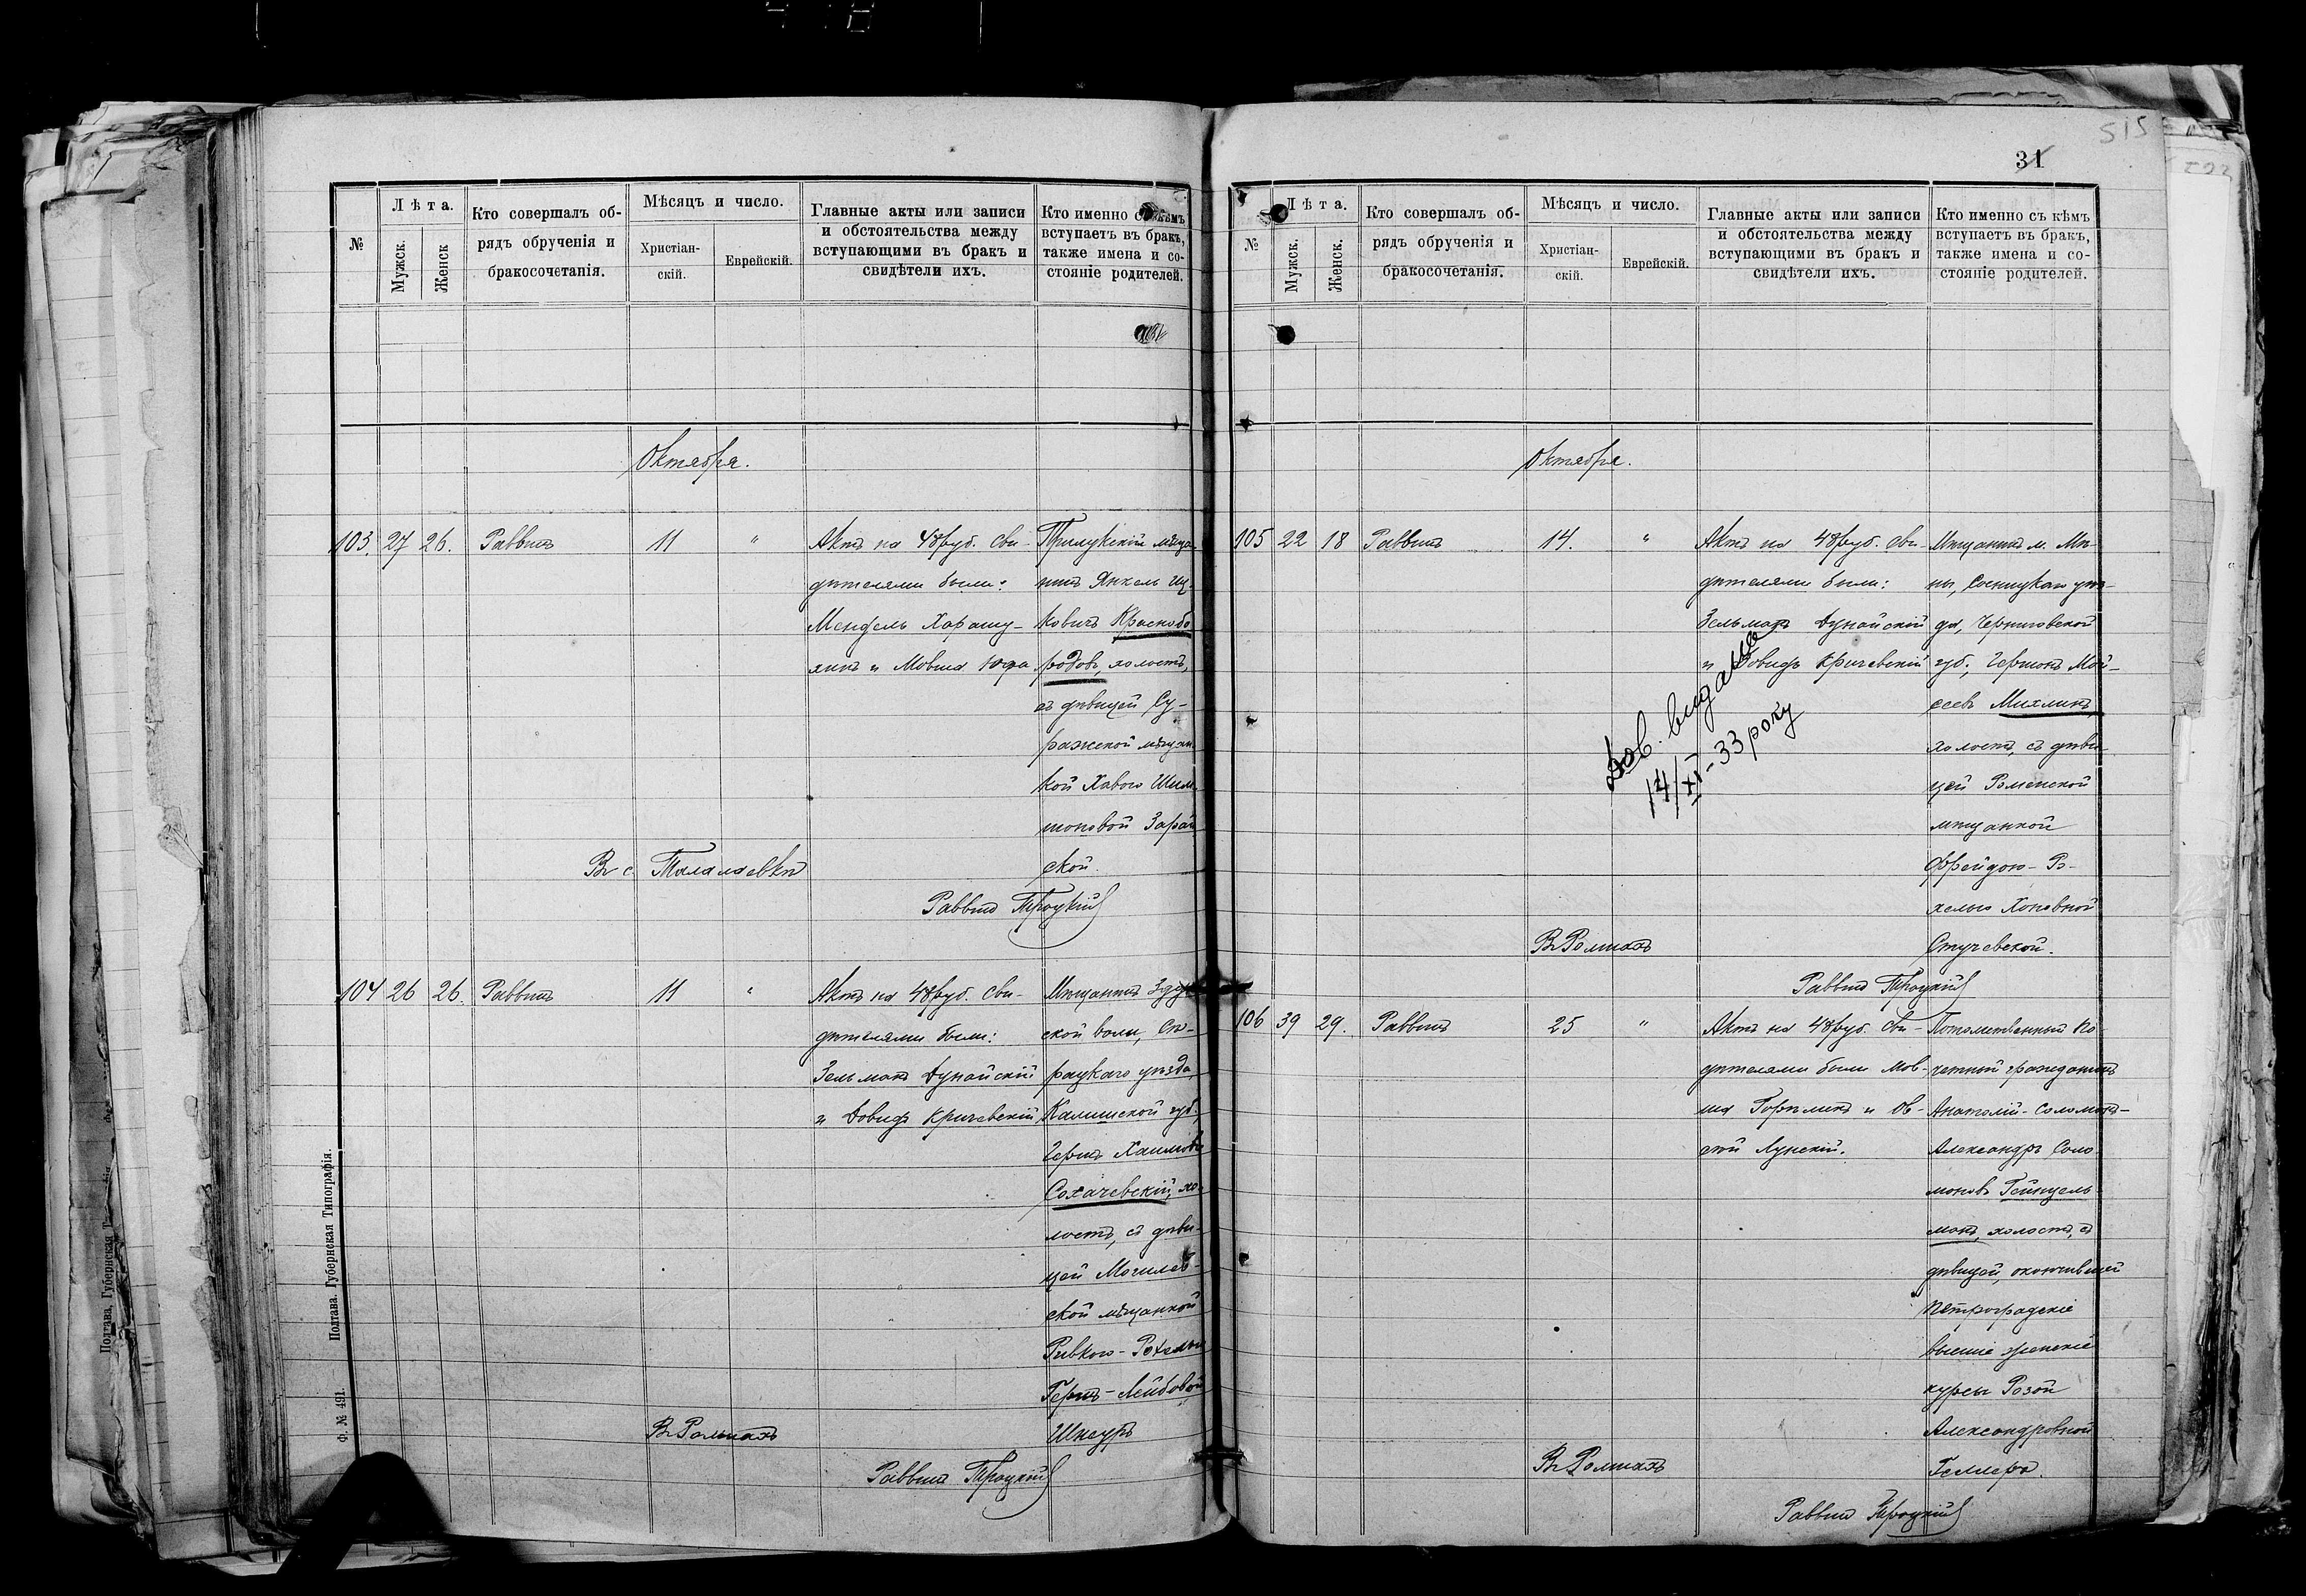 515
31
№
Лѣта.
Мужск.
Женск
Кто совершалъ об-
рядъ обрученія и
бракосочетанія.
Мѣсяцъ и число.
Христіан-
скій.
Еврейскій.
Главные акты или записи
и обстоятельства между
вступающими въ бракъ и
свидѣтели ихъ.
Кто именно съ кѣмъ
вступаетъ въ бракъ,
также имена и со-
стояніе родителей.
Октября.
103. 27 26. Раввинъ 11 "
Актъ на 48 руб. Сви-
дѣтелями были:
Мендель
и Мовша
Прилукскій мѣща-
нинъ Янкель Иц-
ковичъ Краснобо-
родовъ, холостъ,
съ дѣвицей Су-
ражской мѣщан-
кой Хавою Шим-
шоновой Зарай-
ской.
Въ с. Талалаевкѣ
Раввинъ Троцкій
104 26 26. Раввинъ 11 "
Актъ на 48 руб. Сви-
дѣтелями были:
Зельманъ Дунайскій
и Довидъ Кричевскій
Мѣщанинъ
ской воли, Сѣ-
радскаго уѣзда,
Калишской губ.
Герцъ Хаимовъ
Сохачевскій, хо-
лостъ, съ дѣви-
цей Могилев-
ской мѣщанкой
Ривкою-Рохелью
Герцъ-Лейбовой
Шнеуръ
Въ Ромнахъ
Раввинъ Троцкій
Полтава. Губернская Типографія.
Ф. № 491.
№
Лѣта.
Мужск.
Женск.
Кто совершалъ об-
рядъ обрученія и
бракосочетанія.
Мѣсяцъ и число.
Христіан-
скій.
Еврейскій.
Главные акты или записи
и обстоятельства между
вступающими въ бракъ и
свидѣтели ихъ.
Кто именно съ кѣмъ
вступаетъ въ бракъ,
также имена и со-
стояніе родителей.
Октября.
105 22 18 Раввинъ 14. "
Актъ на 48 руб. Сви-
дѣтелями были:
Зельманъ Дунайскій
и Довидъ Кричевскій
Дов. видана
14/XI-33 року
Мѣщанинъ м. Мѣ-
ны, Сосницкаго уѣз-
да, Черниговской
губ., Гершонъ Мой-
сеевъ Михлинъ,
холостъ, съ дѣви-
цей Роменской
мѣщанкой
Фрейдою-Ро-
хелью Хоневной
Стучевской.
Въ Ромнахъ
Раввинъ Троцкій
106 39 29. Раввинъ 25 "
Актъ на 48 руб. Сви-
дѣтелями были Мов-
ша Горѣликъ и Ов-
сей Лунскій.
Потомственный По-
четный гражданинъ
Анатолій-Соломонъ-
Александръ Соло-
моновъ Гейнцель-
манъ, холостъ, съ
дѣвицей, окончившей
Петроградскіе
высшіе женскіе
курсы Розой
Александровной
Геллеръ.
Въ Ромнахъ
Раввинъ Троцкій